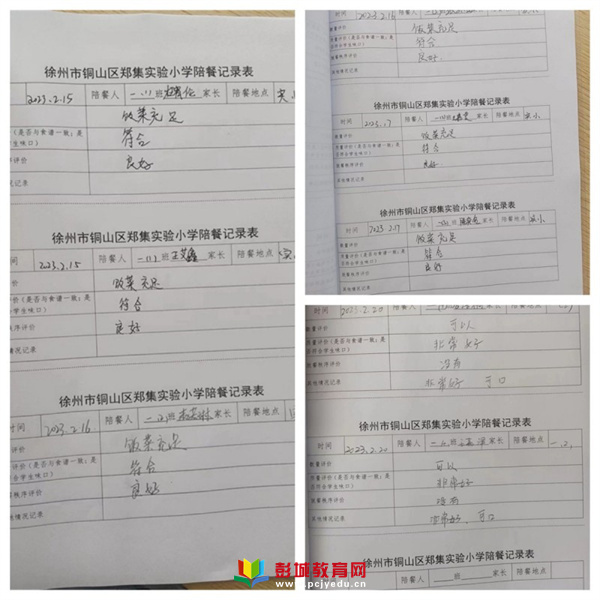 徐州市铜山区郑集实验小学陪餐记录表
2023.2.15 陪餐人 一.(1)班 家长 陪餐地点 实
饭菜充足
(是否与食谱一致;是
符合学生味口) 符合
序评价 良好
记录
徐州市铜山区郑集实验小学陪餐记录表
时间 2023.2.15 陪餐人 一(1)班 家长 陪餐地点
评价 饭菜充足
评价(是否与食谱一致;是
符合学生味口) 符合
秩序评价 良好
情况记录
徐州市铜山区郑集实验小学陪餐记录表
时间 2023.2.16 陪餐人 班 家长 陪餐地点
饭菜充足
评价(是否与食谱一致;是
否符合学生味口) 符合
秩序评价 良好
情况记录
时间 2023.2.16 陪餐人 家长 陪餐地点
数量评价 饭菜充足
符合
良好
徐州市铜山区郑集实验小学陪餐记录表
时间 陪餐人 班 家长 陪餐地点 实小
数量评价 饭菜充足
质量评价(是否与食谱一致;是
否符合学生味口) 符合
就餐秩序评价 良好
其他情况记录
徐州市铜山区郑集实验小学陪餐记录表
时间 2023.2.17 陪餐人 班 家长 陪餐地点 实小
数量评价 饭菜充足
质量评价(是否与食谱一致;是
否符合学生味口) 符合
就餐秩序评价 良好
其他情况记录
时间 2023.2.20 陪餐人
数量评价 可以
质量评价(是否与食谱一致;是
否符合学生味口) 非常好
就餐秩序评价 没有
其他情况记录 非常好 可口
徐州市铜山区郑集实验小学陪餐记录表
时间 2023.2.20 陪餐人 班 家长 陪餐地点
数量评价 可以
质量评价(是否与食谱一致;是
否符合学生味口) 非常好
就餐秩序评价 没有
其他情况记录 非常好、可口
徐州市铜山区郑集实验小学陪餐记录表
陪餐人 班 家长 陪餐地点
彭城教育网
www.pcjyedu.cn